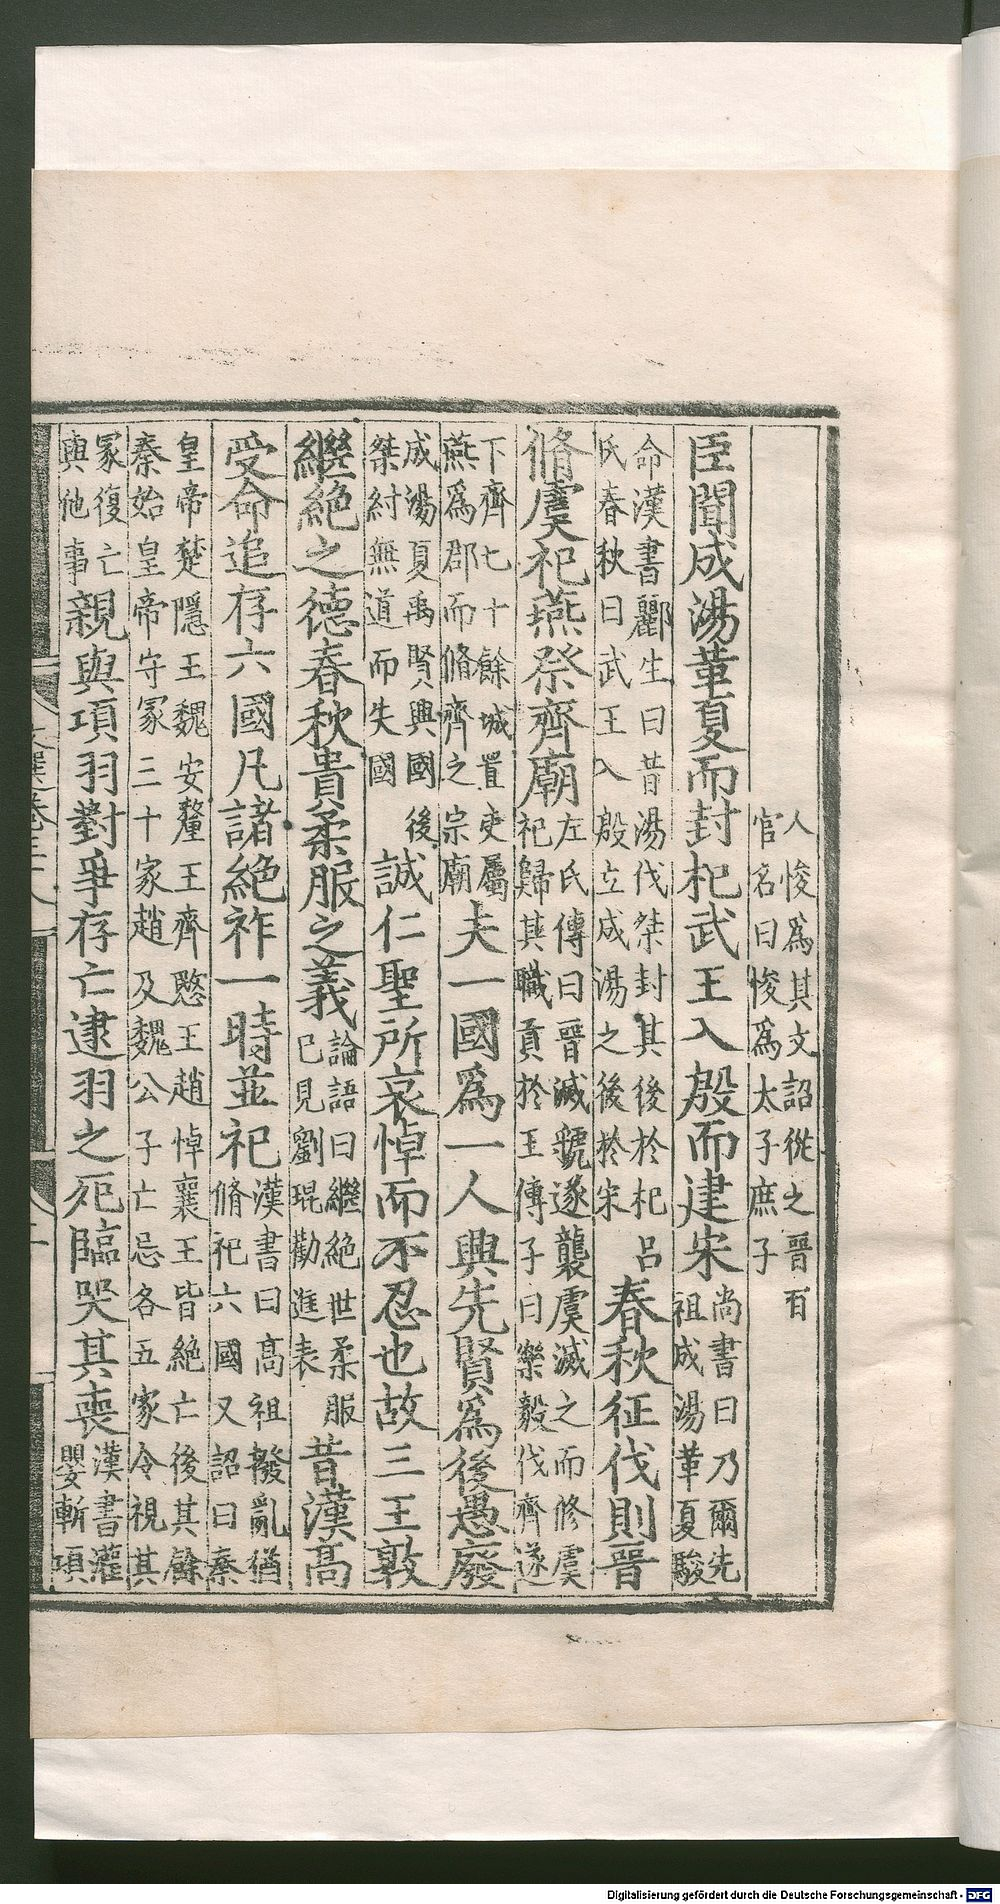 人悛爲其文詔從之晉百
官名曰悛爲太子庶子
臣聞成湯革夏而封杞武王入殷而建宋尚書曰乃爾先
祖成湯革夏駿
命漢書酈生曰昔湯伐桀封其後於杞呂
氏春秋曰武王入殷立成湯之後於宋春秋征伐則晉
脩虞祀燕祭齊廟左氏傳曰晉滅虢遂襲虞滅之而修虞
祀歸其職貢於王傳子曰樂毅伐齊遂
下齊七十餘城置吏屬
燕爲郡而脩齊之宗廟夫一國爲一人興先賢爲後愚廢
成湯夏禹賢興國後
桀紂無道而失國誠仁聖所哀悼而不忍也故三王敦
繼絶之德春秋貴柔服之義論語曰繼絶世柔服
已見劉琨勸進表昔漢高
受命追存六國凡諸絶祚一時並祀漢書曰高祖撥亂猶
脩祀六國又詔曰秦
皇帝楚隱王魏安釐王齊愍王趙悼襄王皆絶亡後其餘
秦始皇帝守冢三十家趙及魏公子亡忌各五家令視其
冢復亡
與他事親與項羽對爭存亡逮羽之死臨哭其喪漢書灌
嬰斬項
文選卷三十八
Digitalisierung gefördert durch die Deutsche Forschungsgemeinschaft - DFG